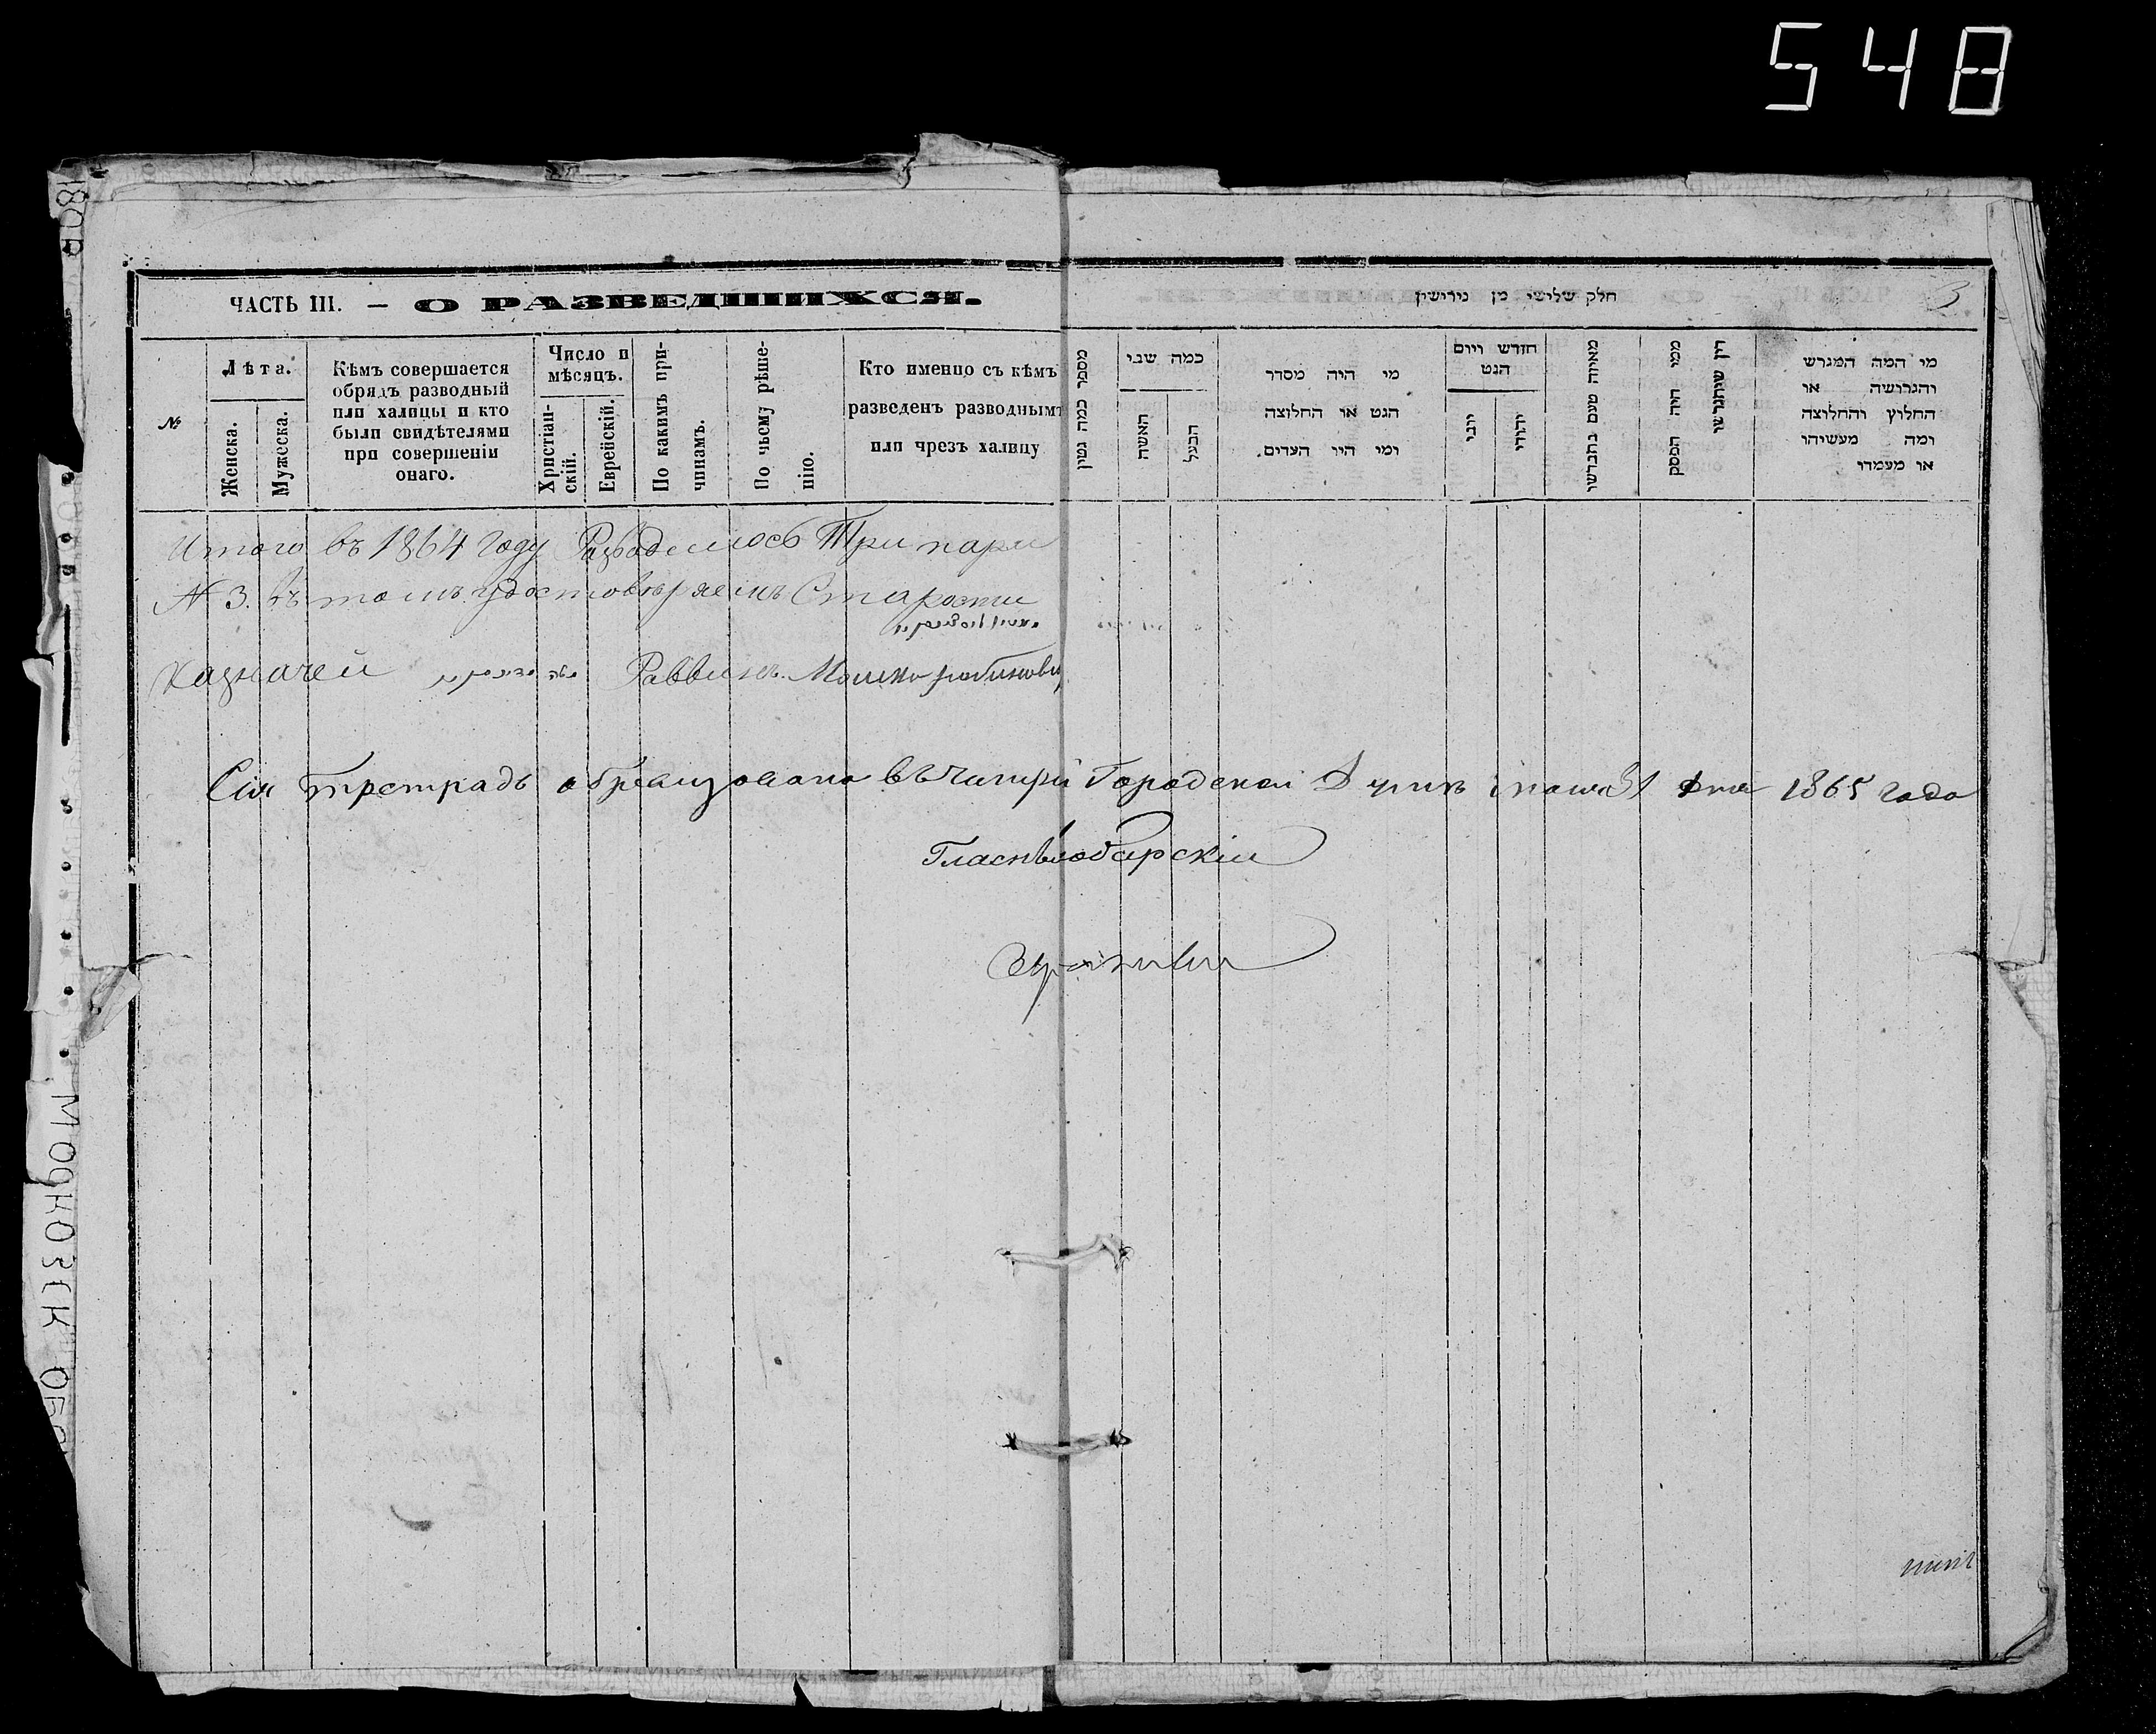 548
ЧАСТЬ III. — О РАЗВЕДШИХСЯ.
חלק שלישי מן גירושין
3
№
Лѣта.
Женска.
Мужеска.
Кѣмъ совершается
обрядъ разводный
или халицы и кто
были свидѣтелями
при совершеніи
онаго.
Число и
мѣсяцъ.
Христіан-
скій.
Еврейскій.
По какимъ при-
чинамъ.
По чьему рѣше-
нію.
Кто именно съ кѣмъ
разведенъ разводнымъ
или чрезъ халицу
מספר כמה גטין
כמה שני
האשה
הבעל
מי היה מסדר
הגט או החלוצה
ומי היו העדים.
חודש ויום
הגט
יוני
יהודי
מאיזה טעם נתגרשו
ממי היה הפסק
דין שיתגרשו
מי המה המגרש
והגרושה או
החלוץ והחלוצה
ומה מעשיהו
או מעמדו
Итого въ 1864 году Разводилось Три пары
№ 3. въ томъ удостовѣряемъ Старости
Казначей Раввинъ Мошко Рабинович
Сія тетрадь обревизована въ Городской Думѣ 1865 года